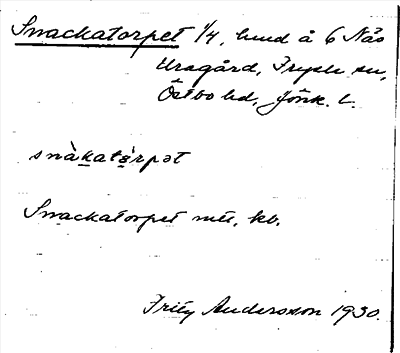 Snackatorpet 1/4, lund å 6 Näs
Uragård, Tryde sn,
Östbo hd, Jönk. l.
snàkatò̤rpət
Snackatorpet mtl, kb.
Fritz Andersson 1930.